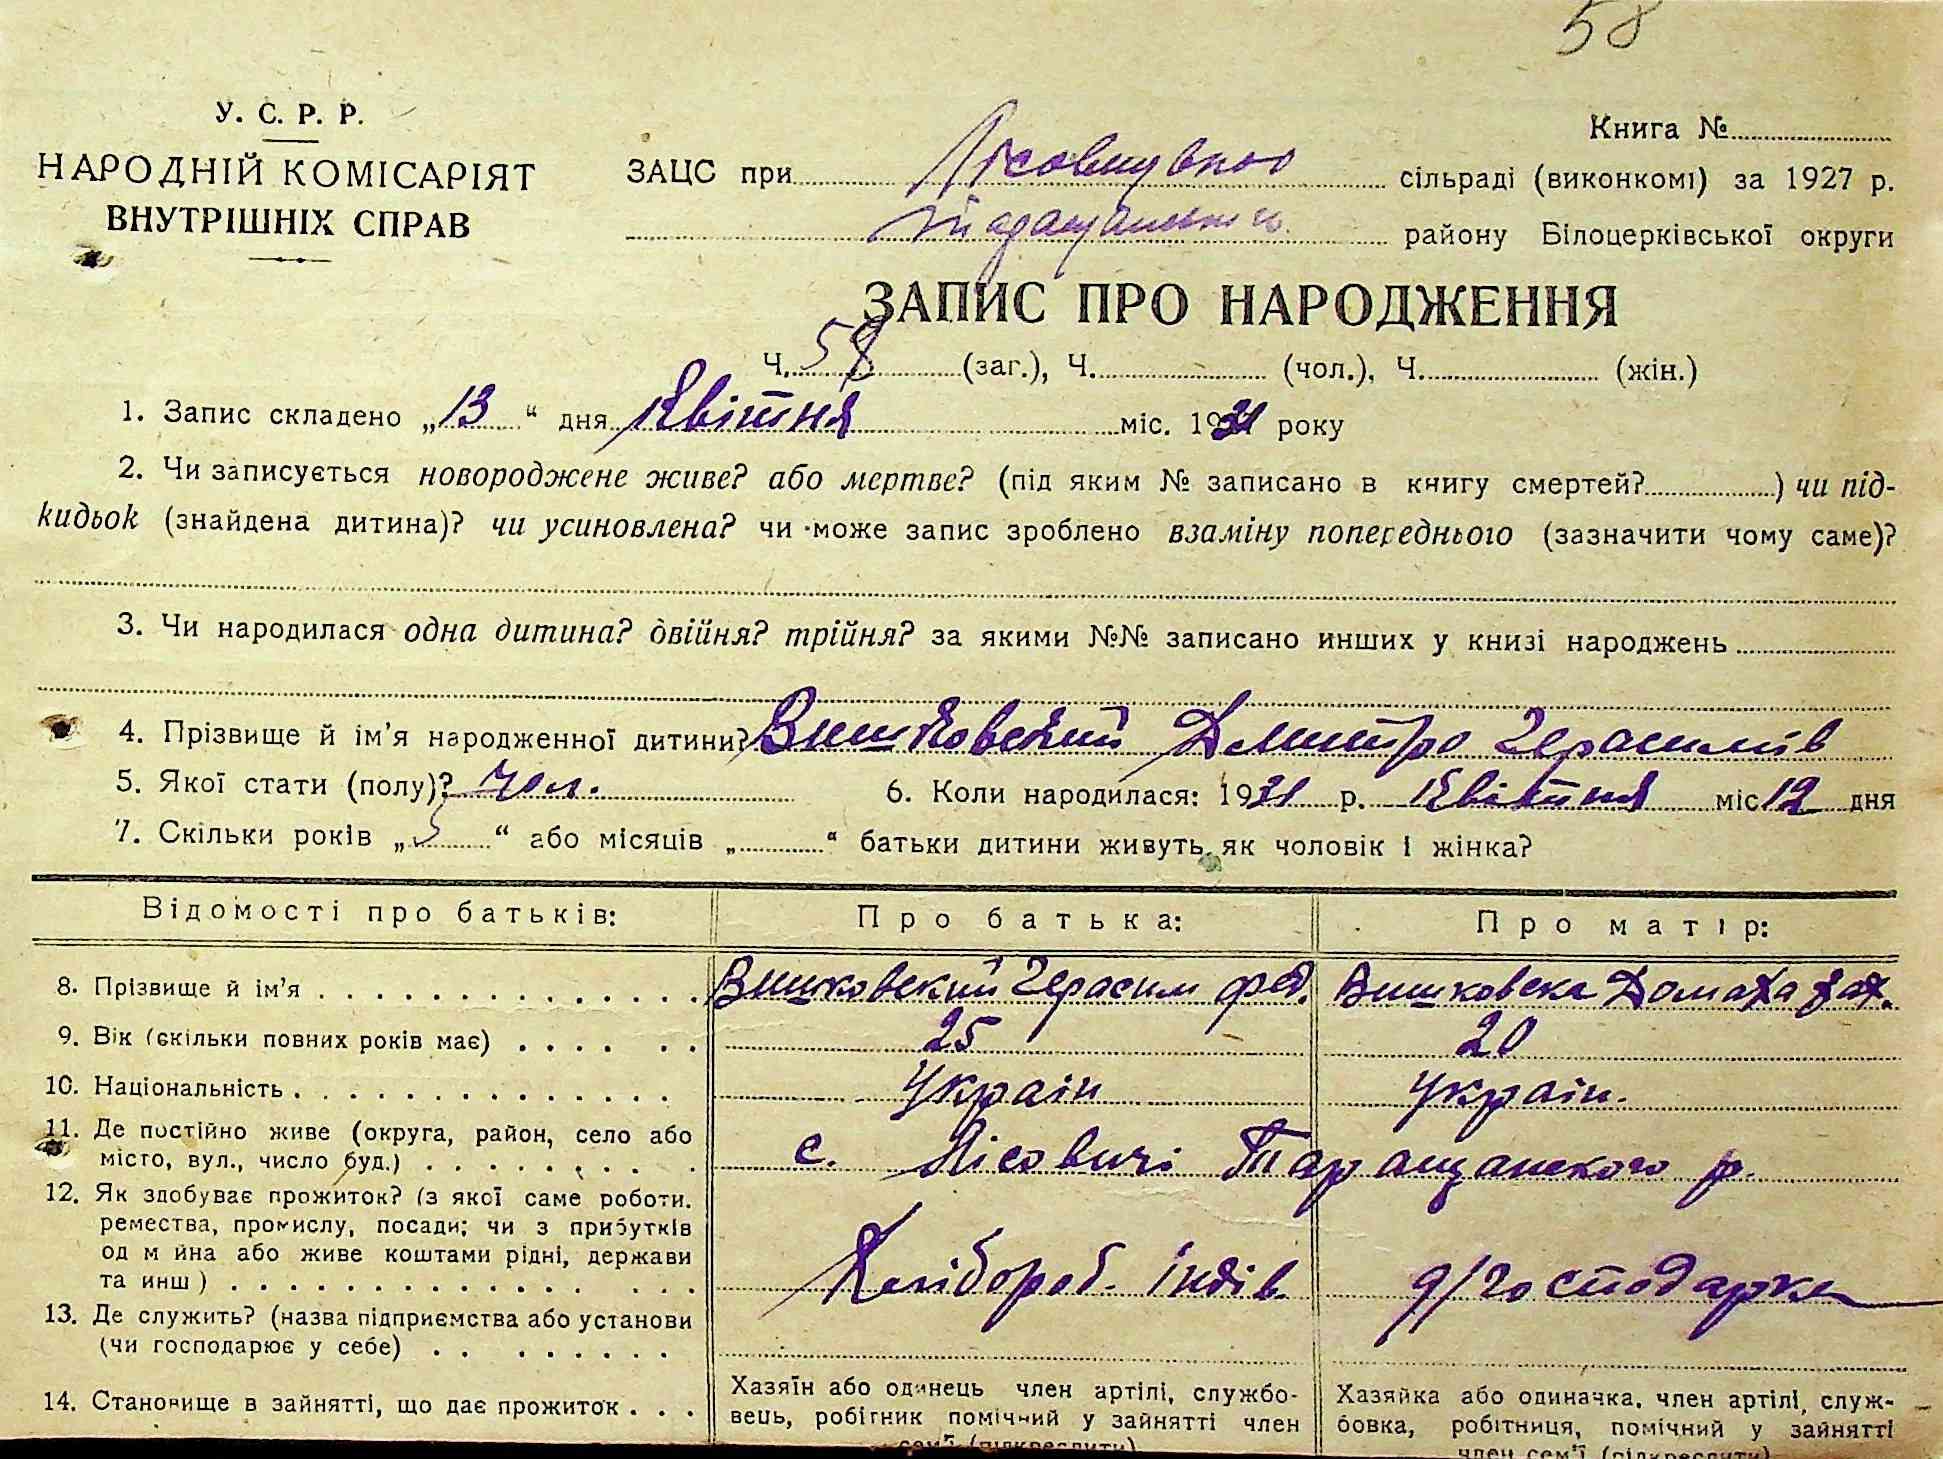 58
У. С. Р. Р.
НАРОДНІЙ КОМІСАРІЯТ
ВНУТРІШНІХ СПРАВ
Книга №
ЗАЦС при сільраді (виконкомі) за 1927 р.
району Білоцерківської округи
ЗАПИС ПРО НАРОДЖЕННЯ
Ч. 58 (заг.), Ч. (чол.), Ч. (жін.)
1. Запис складено „13“ дня Квітня міс. 1931 року
2. Чи записується новороджене живе? або мертве? (під яким № записано в книгу смертей? ) чи під-
кидьок (знайдена дитина)? чи усиновлена? чи може запис зроблено взаміну попереднього (зазначити чому саме)?
3. Чи народилася одна дитина? двійня? трійня? за якими №№ записано инших у книзі народжень
4. Прізвище й ім'я народженної дитини? Вишковский Дмитро Герасимів
5. Якої стати (полу)? чол. 6. Коли народилася: 1931 р. Квітня міс 12 дня
7. Скільки років „5“ або місяців „ “ батьки дитини живуть як чоловік і жінка?
Відомості про батьків: Про батька: Про матір:
8. Прізвище й ім'я Вишковский Герасим Фед. Вишковска Домаха
9. Вік (скільки повних років має) 25 20
10. Національність україн україн.
11. Де постійно живе (округа, район, село або
місто, вул., число буд.) с. Лісовичі Таращанского р.
12. Як здобуває прожиток? (з якої саме роботи.
ремества, промислу, посади; чи з прибутків
од м йна або живе коштами рідні, держави
та инш) Хлібороб. індів. д/господарка
13. Де служить? (назва підприємства або установи
(чи господарює у себе)
14. Становище в зайнятті, що дає прожиток
Хазяїн або одинець член артілі, службо-
вець, робітник помічний у зайнятті член
сем'ї (підкреслити)
Хазяйка або одиначка, член артілі, служ-
бовка, робітниця, помічний у зайнятті
член сем'ї (підкреслити)